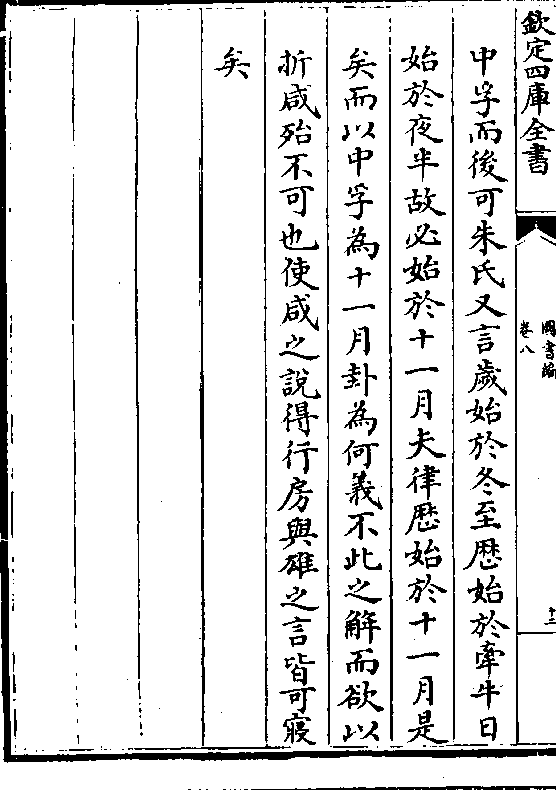 欽定四庫全書
圖書編
卷八
十二
中孚而後可朱氏又言歲始於冬至歴始於牽牛日
始於夜半故必始於十一月夫律歴始於十一月是
矣而以中孚為十一月卦為何義不此之解而欲以
折咸殆不可也使咸之說得行房與雄之言皆可寢
矣